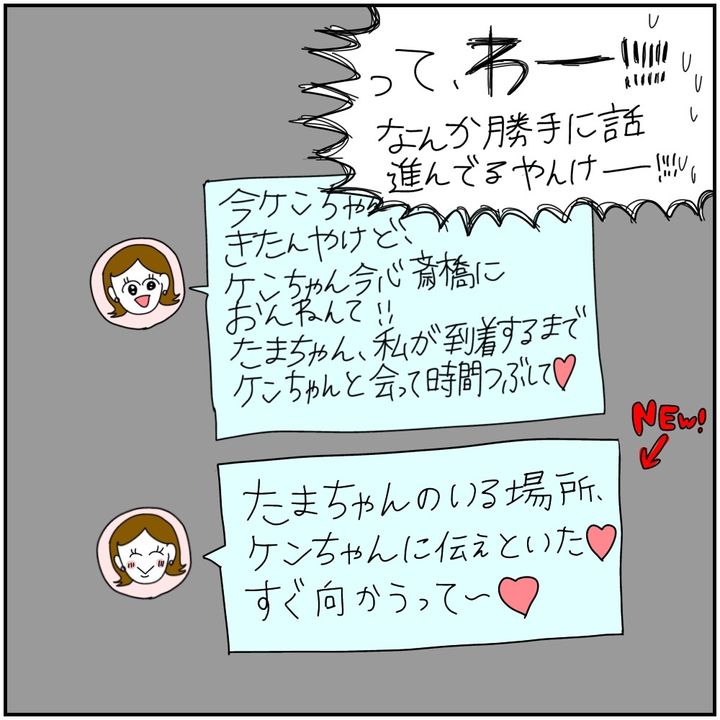 って、わー!!!!!
なんか勝手に話
進んでるやんけー!!!
今ケンちゃん
きたんやけど、
ケンちゃん今心斎橋に
おんねんて!!
たまちゃん、私が到着するまで
ケンちゃんと会って時間つぶして♥
NEW!
たまちゃんのいる場所、
ケンちゃんに伝えといた♥
すぐ向かうって〜♥